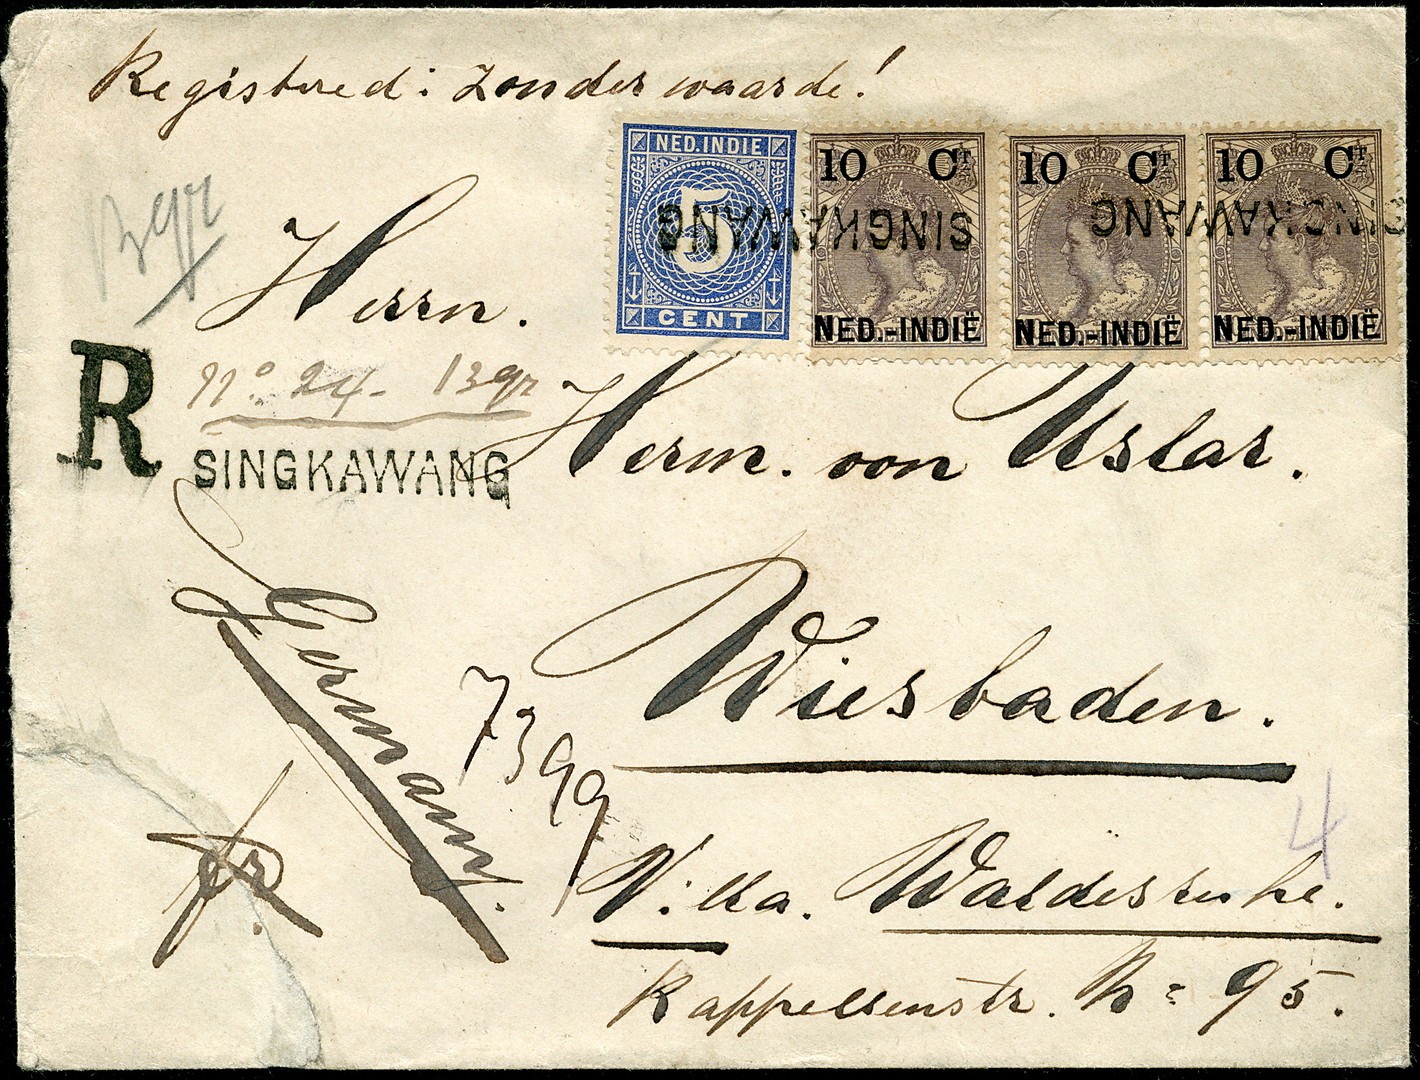 Registered: Zonder waarde!
NED. INDIE
5
CENT
10 CT
NED.-INDIË
10 CT
NED.-INDIË
10 CT
NED.-INDIË
SINGKAWANG
SINGKAWANG
SINGKAWANG
SINGKAWANG
13 gr
Herrn.
R
No. 24- 13 gr
SINGKAWANG
Herm. von Uslar.
Germany.
7399
Wiesbaden.
4
Villa. Waldesruhe.
fr.
Kappellenstr. No 95.